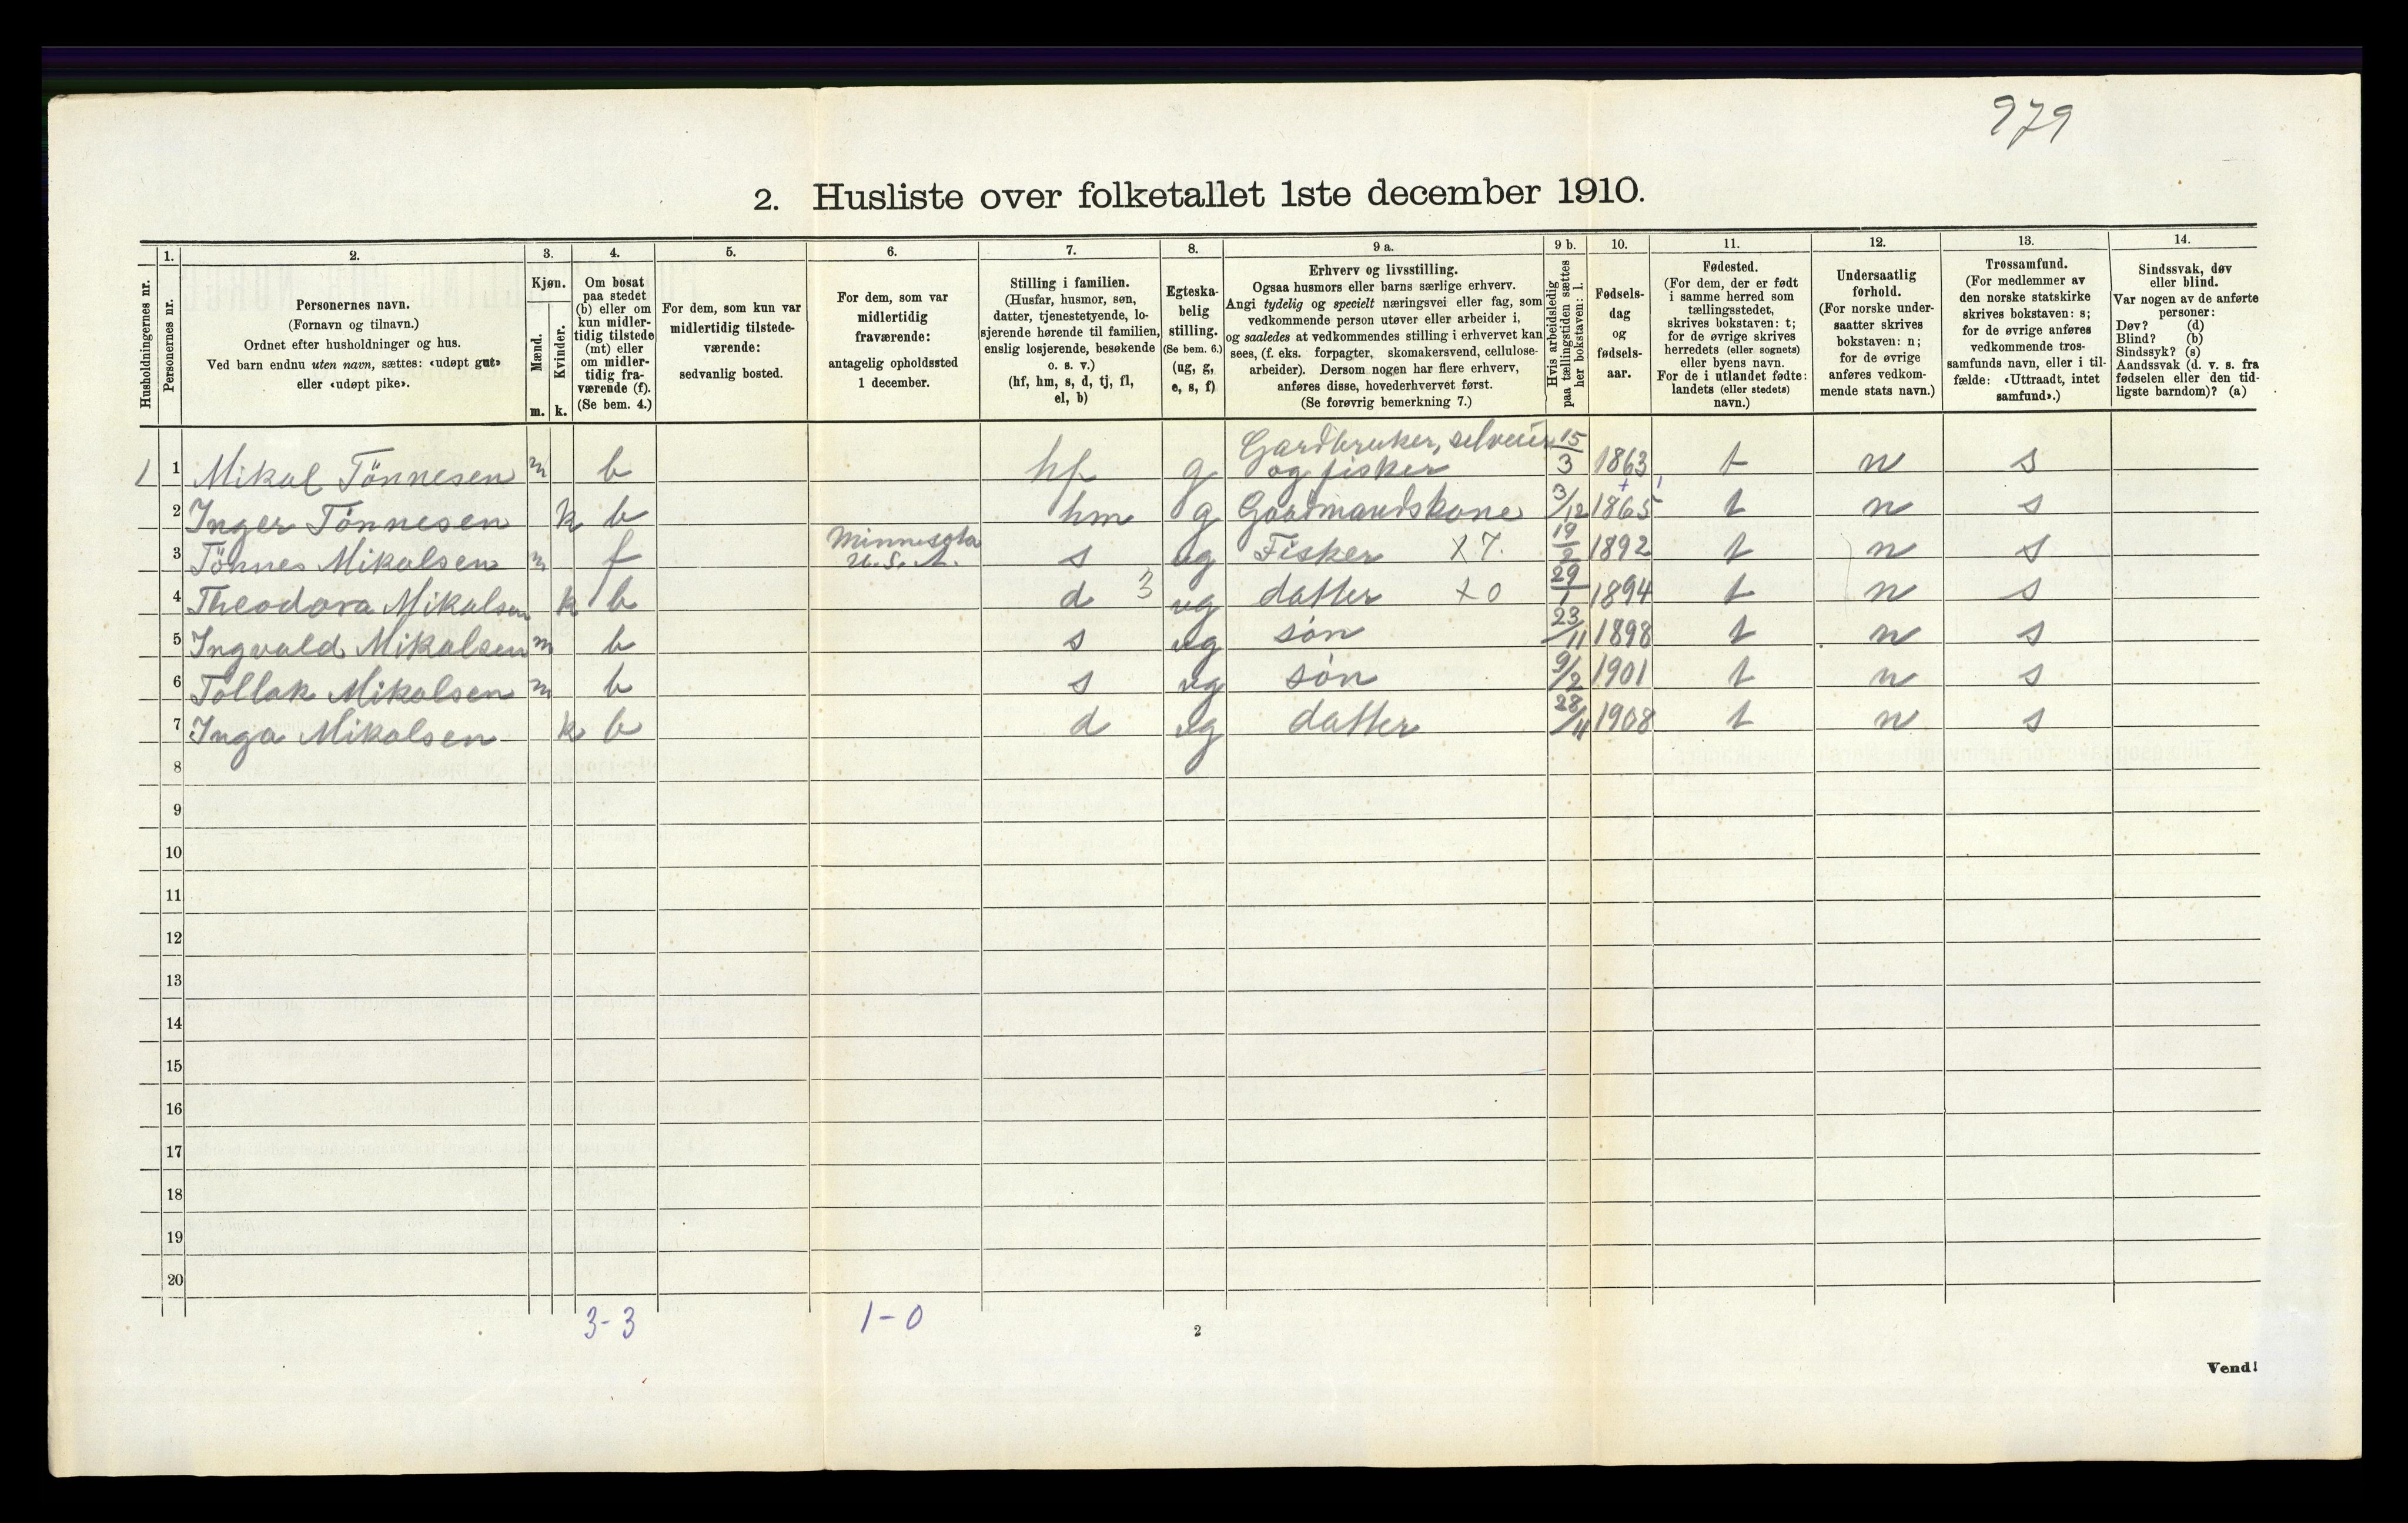 979
2. Husliste over folketallet 1ste december 1910.
Husholdningernes nr.
1.
Personernes nr.
2.
Personernes navn.
(Fornavn og tilnavn.)
Ordnet efter husholdninger og hus.
Ved barn endnu uten navn, sættes: «udøpt gut»
eller «udøpt pike».
3.
Kjøn.
Mænd.
Kvinder.
m. k.
4.
Om bosat
paa stedet
(b) eller om
kun midler-
tidig tilstede
(mt) eller
om midler-
tidig fra-
værende (f).
(Se bem. 4.)
5.
For dem, som kun var
midlertidig tilstede-
værende:
sedvanlig bosted.
6.
For dem, som var
midlertidig
fraværende:
antagelig opholdssted
1 december.
7.
Stilling i familien.
(Husfar, husmor, søn,
datter, tjenestetyende, lo-
sjerende hørende til familien,
enslig losjerende, besøkende
o. s. v.)
(hf, hm, s, d, tj, fl,
el, b)
8.
Egteska-
belig
stilling.
(Se bem. 6.)
(ug, g,
e, s, f)
9 a.
Erhverv og livsstilling.
Ogsaa husmors eller barns særlige erhverv.
Angi tydelig og specielt næringsvei eller fag, som
vedkommende person utøver eller arbeider i,
og saaledes at vedkommendes stilling i erhvervet kan
sees, (f. eks. forpagter, skomakersvend, cellulose-
arbeider). Dersom nogen har flere erhverv,
anføres disse, hovederhvervet først.
(Se forøvrig bemerkning 7.)
9 b.
Hvis arbeidsledig
paa tællingstiden sættes
her bokstaven: l.
10.
Fødsels-
dag
og
fødsels-
aar.
11.
Fødested.
(For dem, der er født
i samme herred som
tællingsstedet,
skrives bokstaven: t;
for de øvrige skrives
herredets (eller sognets)
eller byens navn.
For de i utlandet fødte:
landets (eller stedets)
navn.)
12.
Undersaatlig
forhold.
(For norske under-
saatter skrives
bokstaven: n;
for de øvrige
anføres vedkom-
mende stats navn.)
13.
Trossamfund.
(For medlemmer av
den norske statskirke
skrives bokstaven: s;
for de øvrige anføres
vedkommende tros-
samfunds navn, eller i til-
fælde: «Uttraadt, intet
samfund».)
14.
Sindssvak, døv
eller blind.
Var nogen av de anførte
personer:
Døv? (d)
Blind? (b)
Sindssyk? (s)
Aandssvak (d. v. s. fra
fødselen eller den tid-
ligste barndom)? (a)
1 1 Mikal Tönnesen m b hf g Gardbruker, selveier og fisker 15/3 1863 t n s
2 Inger Tönnesen k b hm g Gaardmandskone 3/12 1865 t n s
3 Tönnes Mikalsen m f Minnesota U.S.A. s ug Fisker X 7. 19/2 1892 t n s
4 Theodora Mikalsen k b d 3 ug datter X 0 29/1 1894 t n s
5 Ingvald Mikalsen m b s ug søn 23/11 1898 t n s
6 Tollak Mikalsen m b s ug søn 9/2 1901 t n s
7 Inga Mikalsen k b d ug datter 28/11 1908 t n s
8
9
10
11
12
13
14
15
16
17
18
19
20
3-3 1-0
2
Vend!